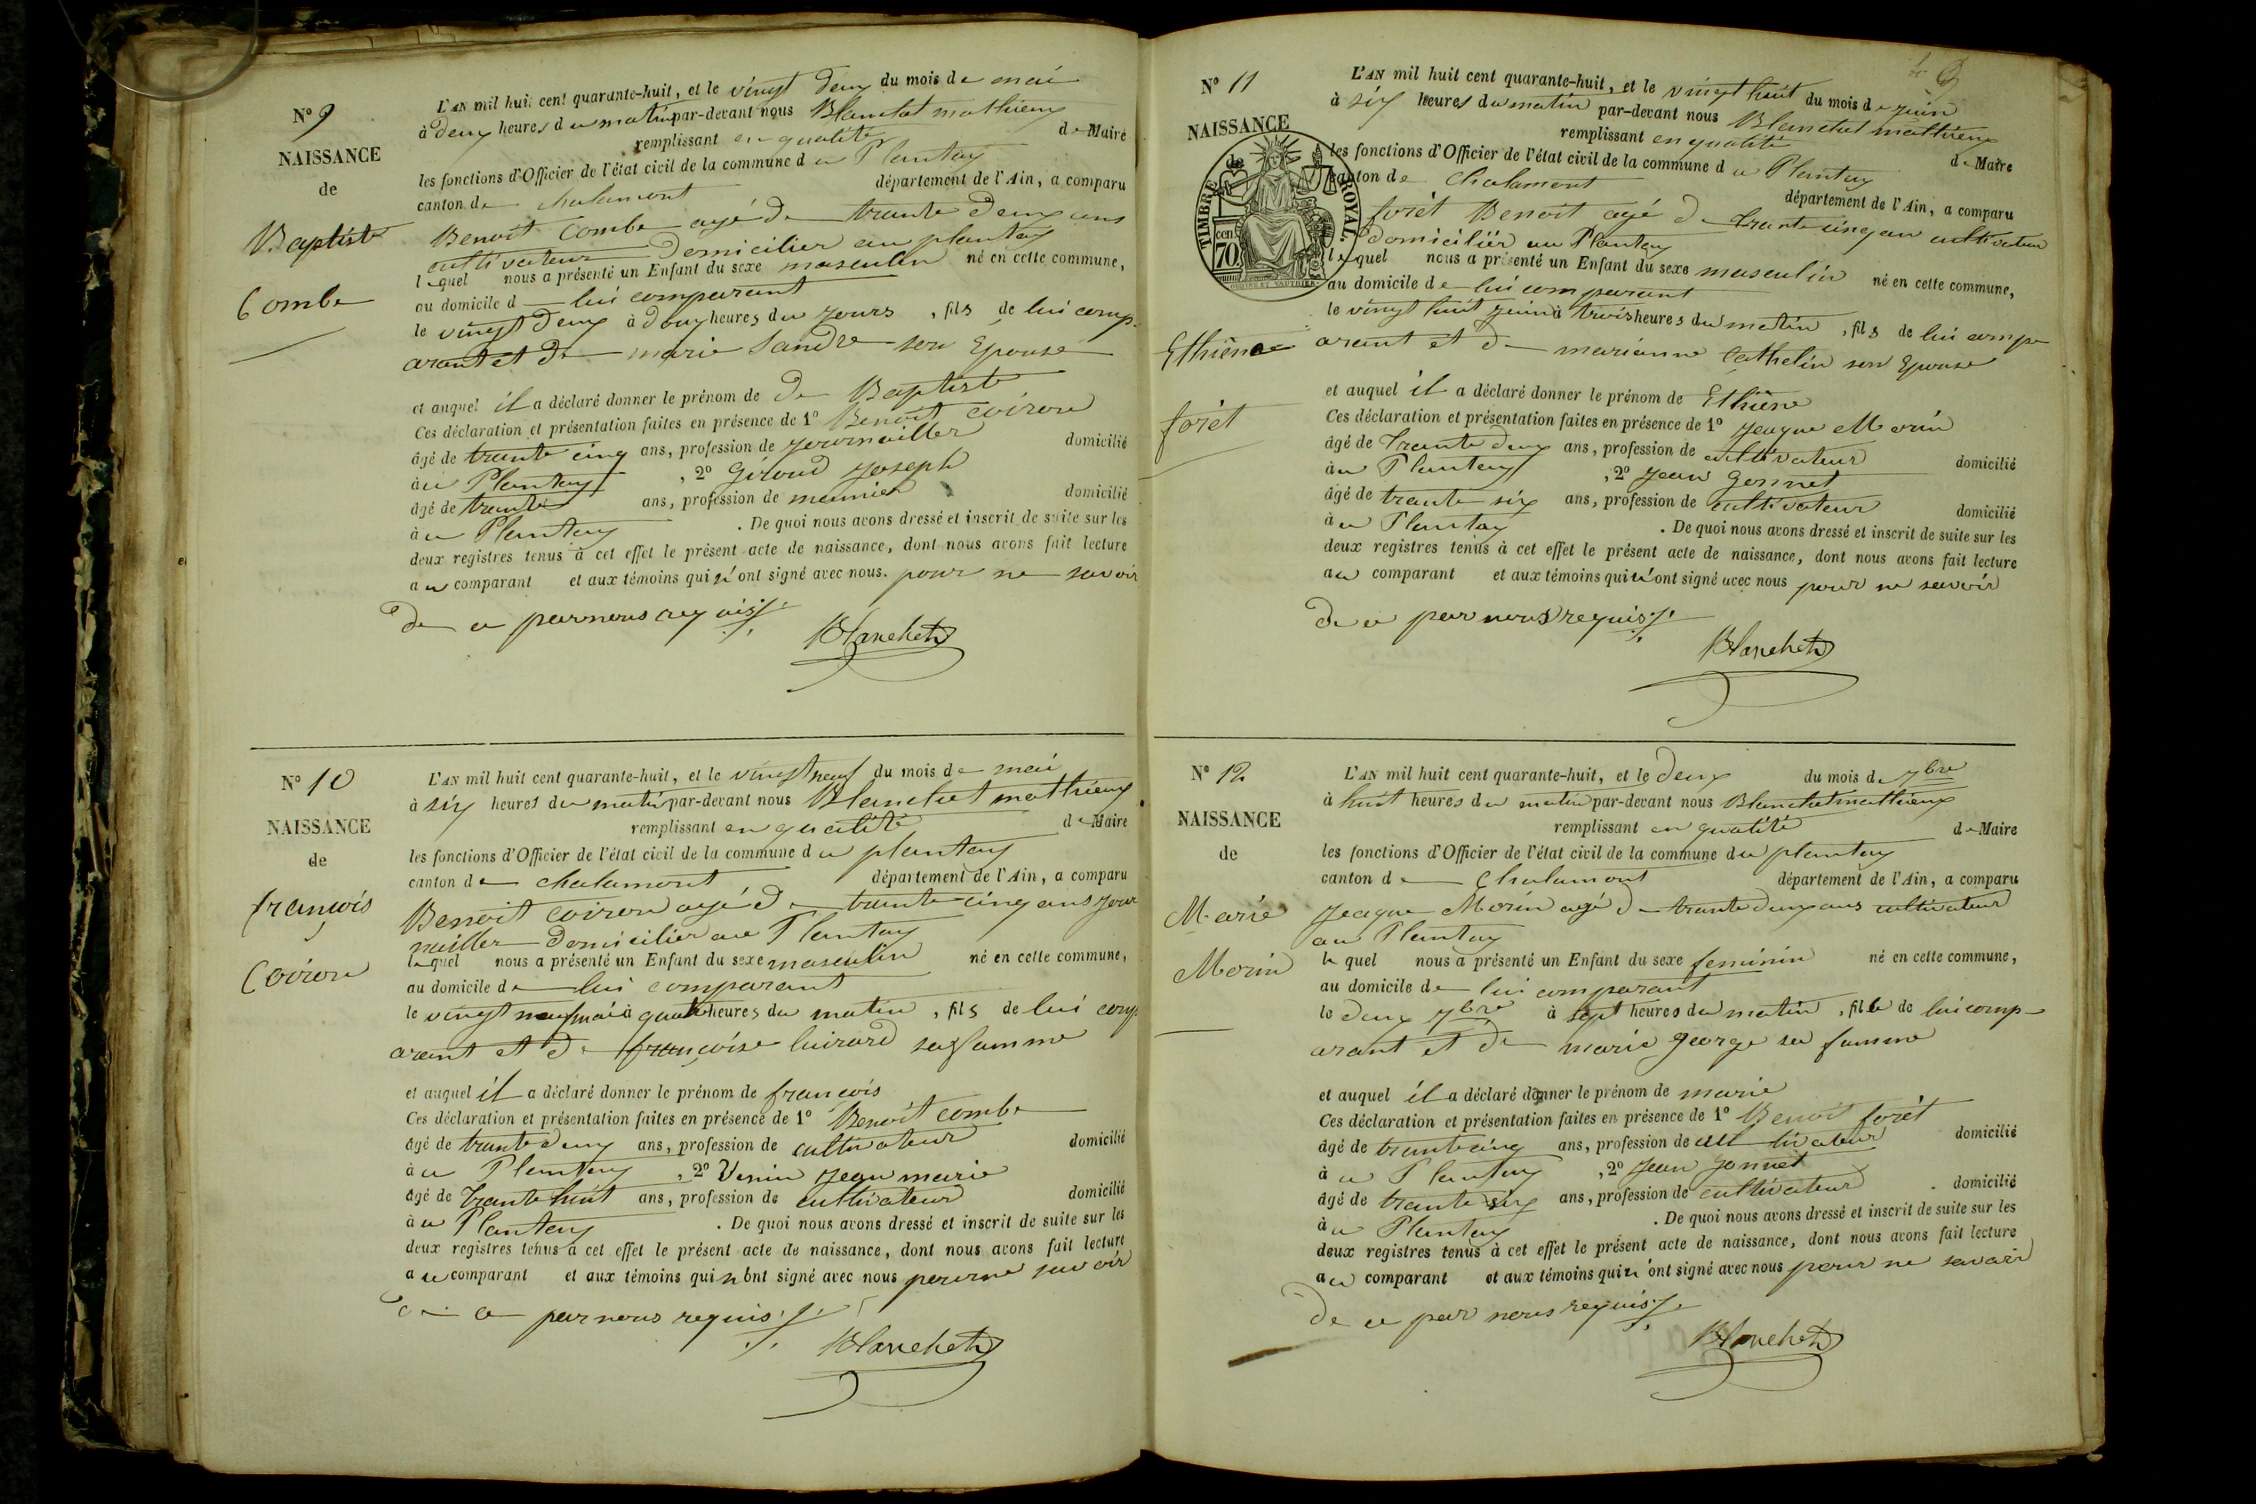 N° 9
NAISSANCE
de
Baptiste
Combe
L'AN mil huit cent quarante-huit, et le vingt deux du mois de mai
à deux heures du matin par-devant nous Blanchet mathieux
remplissant en qualité de Maire
les fonctions d'Officier de l'état civil de la commune du Plantay
canton de chalamont département de l'Ain, a comparu
Benoit Combe agé de trante deux ans
cultivateur domicilier au plantay
lequel nous a présenté un Enfant du sexe masculin né en cette commune,
au domicile d lui comparant
le vingt deux à douz heures du jours, fils de lui comp-
arant et de marie Sandre son Epouse
et auquel il a déclaré donner le prénom de de Baptiste
Ces déclaration et présentation faites en présence de 1° Benoit Coiron
âgé de trante cinq ans, profession de journailler domicilié
au Plantay, 2° Giroud Joseph
âgé de trante ans, profession de meunier domicilié
au Plantay. De quoi nous avons dressé et inscrit de suite sur les
deux registres tenus à cet effet le présent acte de naissance, dont nous avons fait lecture
au comparant et aux témoins qui n'ont signé avec nous. pour ne savoir
de ce par nous requis
Blanchet
N° 10
NAISSANCE
de
françois
Coiron
L'AN mil huit cent quarante-huit, et le vingt neuf du mois de mai
à six heures du matin par-devant nous Blanchet mathieux
remplissant en qualité de Maire
les fonctions d'Officier de l'état civil de la commune du plantay
canton de chalamont département de l'Ain, a comparu
Benoit Coiron agé de trante cinq ans jour
nailler domicilier au Plantay
lequel nous a présenté un Enfant du sexe masculin né en cette commune,
au domicile de lui comparant
le vingt neuf mai à quatre heures du matin, fils de lui comp
arant et de françoise luirard sa famme
et auquel il a déclaré donner le prénom de françois
Ces déclaration et présentation faites en présence de 1° Benoit combe
âgé de trante deux ans, profession de cultivateur domicilié
au Plantay, 2° Venin jean marie
âgé de trante huit ans, profession de cultivateur domicilié
au Plantay. De quoi nous avons dressé et inscrit de suite sur les
deux registres tenus à cet effet le présent acte de naissance, dont nous avons fait lecture
au comparant et aux témoins qui n'ont signé avec nous pour ne savoir
de ce par nous requis
Blanchet
N° 11
NAISSANCE
de
TIMBRE ROYAL.
cen. 70
Ethiène
forêt
L'AN mil huit cent quarante-huit, et le vingt huit du mois de juin
à six heures du matin par-devant nous Blanchet mathieux
remplissant en qualité de Maire
les fonctions d'Officier de l'état civil de la commune du Plantay
canton de chalamont département de l'Ain, a comparu
forêt Benoit agé de trante cinq an cultivateur
domicilier au Plantay
lequel nous a présenté un Enfant du sexe masculin né en cette commune,
au domicile de lui comparant
le vingt huit juin à trois heures du matin, fils de lui comp
arant et de marianne Cathelin son Epouse
et auquel il a déclaré donner le prénom de Ethiène
Ces déclaration et présentation faites en présence de 1° Jeaque Morin
âgé de trante deux ans, profession de cultivateur domicilié
au Plantay, 2° Jean Gonnet
âgé de trante six ans, profession de cultivateur domicilié
au Plantay. De quoi nous avons dressé et inscrit de suite sur les
deux registres tenus à cet effet le présent acte de naissance, dont nous avons fait lecture
au comparant et aux témoins qui n'ont signé avec nous pour ne savoir
de ce par nous requis
Blanchet
N° 12
NAISSANCE
de
Marie
Morin
L'AN mil huit cent quarante-huit, et le deux du mois de 7bre
à huit heures du matin par-devant nous Blanchet mathieux
remplissant en qualité de Maire
les fonctions d'Officier de l'état civil de la commune du plantay
canton de Chalamont département de l'Ain, a comparu
Jeaque Morin agé de trante deux ans cultivateur
au Plantay
lequel nous a présenté un Enfant du sexe feminin né en cette commune,
au domicile de lui comparant
le deux 7bre à sept heures du matin, fille de lui comp-
arant et de marie george sa famme
et auquel il a déclaré donner le prénom de marie
Ces déclaration et présentation faites en présence de 1° Benoit forêt
âgé de trante cinq ans, profession de cultivateur domicilié
au Plantay, 2° Jean Gonnet
âgé de trante six ans, profession de cultivateur domicilié
au Plantay. De quoi nous avons dressé et inscrit de suite sur les
deux registres tenus à cet effet le présent acte de naissance, dont nous avons fait lecture
au comparant et aux témoins qui n'ont signé avec nous pour ne savoir
de ce par nous requis
Blanchet